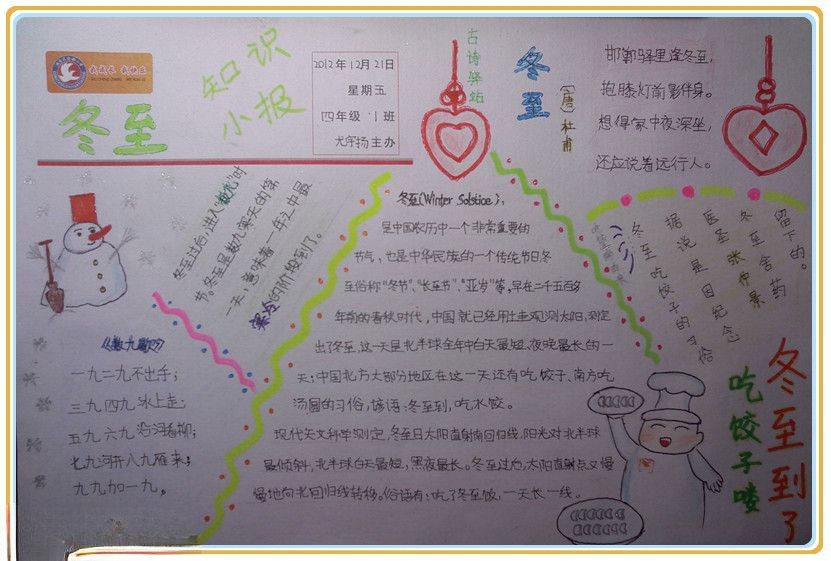 我成长 我快乐
冬至
知识
小报
2012年12月21日
星期五
四年级 11班
尤宇扬主办
古诗驿站
冬至
(唐)杜甫
邯郸驿里逢冬至,
抱膝灯前影伴身。
想得家中夜深坐,
还应说着远行人。
冬至过后,进入“数九”时
节。冬至是数九寒天的第
一天,意味着一年之中最
寒冷的阶段到了。
《数九歌》
一九二九不出手;
三九四九冰上走;
五九六九沿河看柳;
七九河开八九雁来;
九九加一九。
冬至(Winter Solstice),
是中国农历中一个非常重要的
节气,也是中华民族的一个传统节日冬
至俗称“冬节”、“长至节”、“亚岁”等,早在二千五百多
年前的春秋时代,中国就已经用土圭观测太阳,测定
出了冬至,这一天是北半球全年中白天最短、夜晚最长的一
天;中国北方大部分地区在这一天还有吃饺子、南方吃
汤圆的习俗,谚语:冬至到,吃水饺。
现代天文科学测定,冬至日太阳直射南回归线,阳光对北半球
最倾斜,北半球白天最短,黑夜最长。冬至过后,太阳直射点又慢
慢地向北回归线转移。俗语有:吃了冬至饭,一天长一线。
冬至吃饺子的习俗
据说是因纪念
医圣张仲景
冬至舍药
留下的。
冬至到了
吃饺子喽